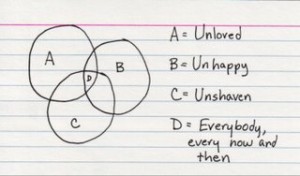 A
B
D
C
A = Unloved
B = Unhappy
C = Unshaven
D = Everybody,
every now and
then